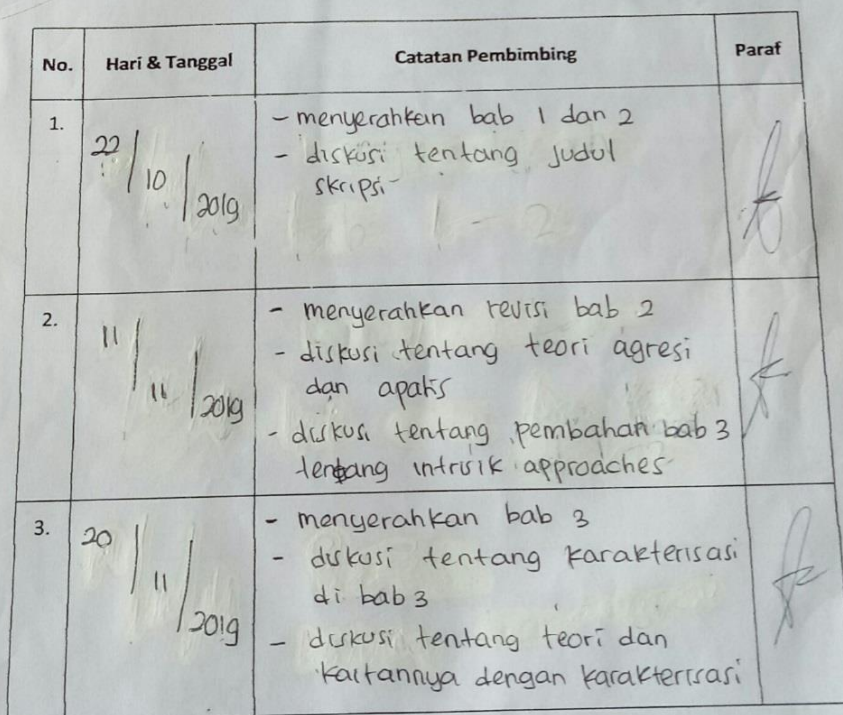 No. Hari & Tanggal Catatan Pembimbing Paraf
1. 22/10/2019
- menyerahkan bab 1 dan 2
- diskusi tentang judul
skripsi
2. 11/11/2019
- menyerahkan revisi bab 2
- diskusi tentang teori agresi
dan apatis
- diskusi tentang pembahan bab 3
tentang intrusik approaches
3. 20/11/2019
- menyerahkan bab 3
- diskusi tentang karakterisasi
di bab 3
- diskusi tentang teori dan
kaitannya dengan karakterisasi